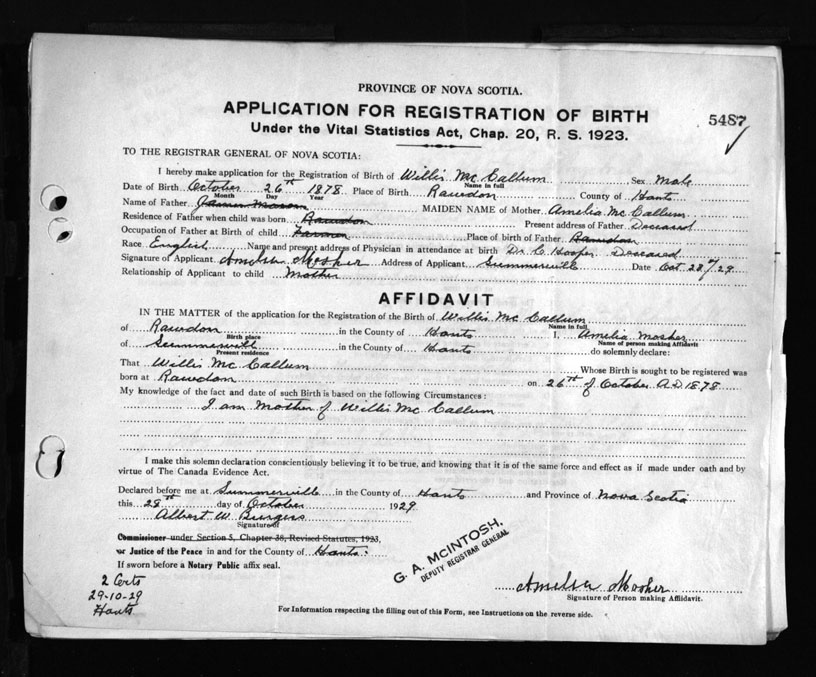 PROVINCE OF NOVA SCOTIA.
APPLICATION FOR REGISTRATION OF BIRTH
5487
Under the Vital Statistics Act, Chap. 20, R. S. 1923.
TO THE REGISTRAR GENERAL OF NOVA SCOTIA:
I hereby make application for the Registration of Birth of Willis Mc Callum Sex Male
Name in full
Date of Birth October 26th 1878 Place of Birth Rawdon County of Hants
Month Day Year
Name of Father James Mason MAIDEN NAME of Mother Amelia Mc Callum
Residence of Father when child was born Rawdon Present address of Father Deceased
Occupation of Father at Birth of child Farmer Place of birth of Father Rawdon
Race English Name and present address of Physician in attendance at birth Dr. C Hooper Deceased
Signature of Applicant Amelia Mosher Address of Applicant Summerville Date Oct 28th/29
Relationship of Applicant to child Mother
AFFIDAVIT
IN THE MATTER of the application for the Registration of the Birth of Willis Mc Callum
Name in full
of Rawdon in the County of Hants I, Amelia Mosher
Birth place Name of person making Affidavit
of Summerville in the County of Hants do solemnly declare:
Present residence
That Willis Mc Callum Whose Birth is sought to be registered was
born at Rawdon on 26th of October A.D. 1878
My knowledge of the fact and date of such Birth is based on the following Circumstances:
I am Mother of Willis Mc Callum
I make this solemn declaration conscientiously believing it to be true, and knowing that it is of the same force and effect as if made under oath and by
virtue of The Canada Evidence Act.
Declared before me at Summerville in the County of Hants and Province of Nova Scotia
this 28th day of October 1929
Albert W Burgess
Signature of
Commissioner under Section 5, Chapter 38, Revised Statutes, 1923,
or Justice of the Peace in and for the County of Hants.
If sworn before a Notary Public affix seal.
G. A. McINTOSH,
DEPUTY REGISTRAR GENERAL
2 Certs
29-10-29
Hants
Amelia Mosher
Signature of Person making Affidavit.
For Information respecting the filling out of this Form, see Instructions on the reverse side.